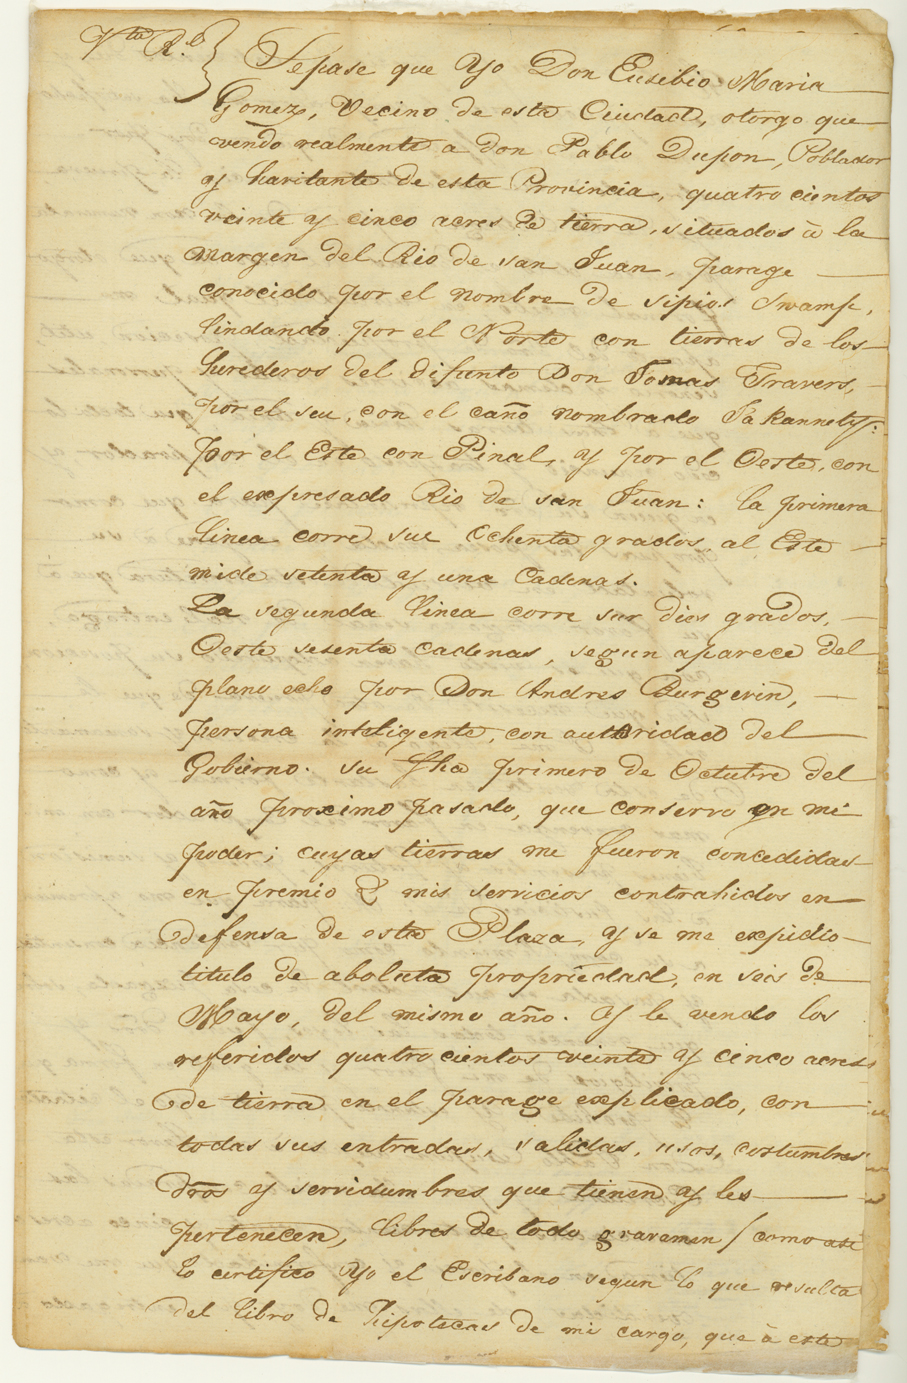 Vta Rl
Sepase que Yo Don Eusebio Maria
Gomez, Vecino de esta Ciudad, otorgo que
vendo realmente a don Pablo Dupon, Poblador
y havitante de esta Provincia, quatro cientos
veinte y cinco acres de tierra, situados à la
margen del Rio de san Juan, parage
conocido por el nombre de sipios Swamp,
lindando por el Norte con tierras de los
herederos del difunto Don Tomas Travers,
por el seu, con el caño nombrado
por el Este con Pinal, y por el Oeste, con
el expresado Rio de san Juan: la primera
linea corre sue ochenta grados al Este
mide setenta y una Cadenas.
La segunda linea corre sur dies grados,
Oeste sesenta cadenas, segun aparece del
plano echo por Don Andres Burgevin,
persona inteligente, con autoridad del
Gobierno. su fha primero de Octubre del
año proximo pasado, que conservo en mi
poder; cuyas tierras me fueron concedidas
en premio de mis servicios contrahidos en
defensa de esta Plaza, y se me expidio
titulo de aboluta propriedad, en seis de
Mayo, del mismo año. Y le vendo los
referidos quatro cientos veinte y cinco acres
de tierra en el parage explicado, con
todas sus entradas, salidas, usos, costumbres
dros y servidumbres que tienen y les
pertenecen, libres de todo gravamen / como asi
lo certifico Yo el Escribano segun lo que resulta
del libro de Hipotecas de mi cargo, que à este